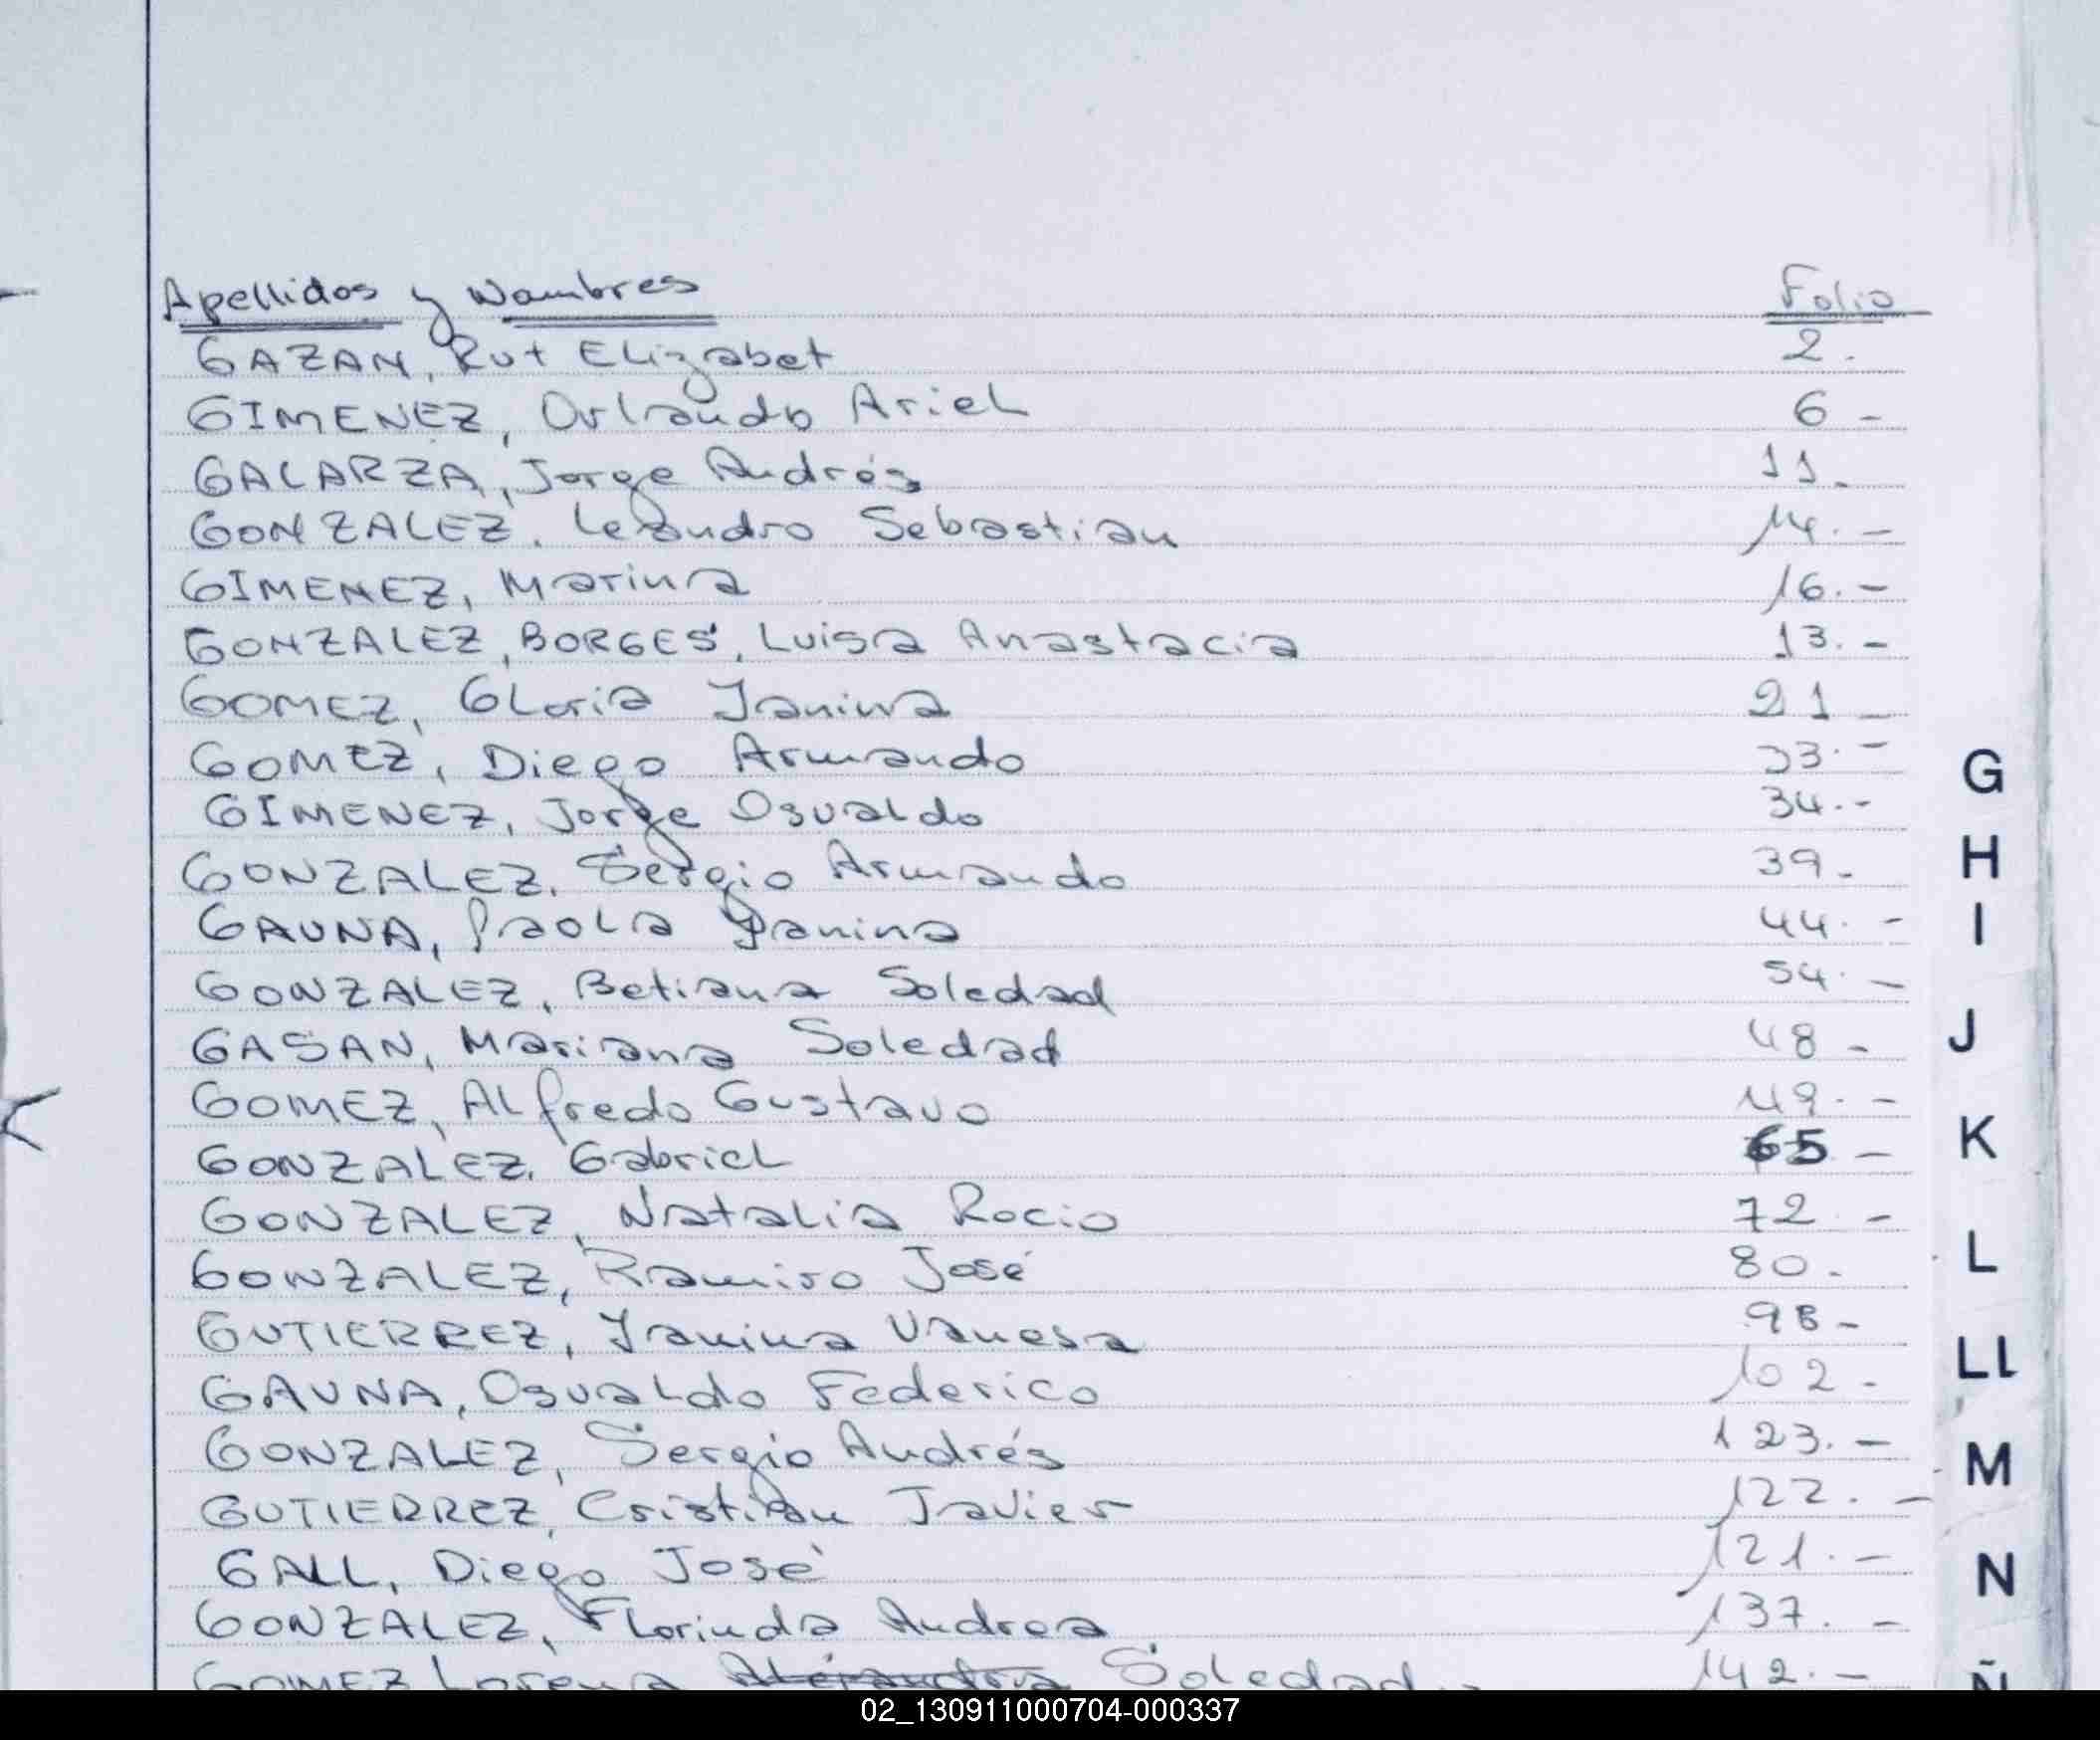 Apellidos y Nombres Folio
GAZAN, Rut Elizabet 2.
GIMENEZ, Orlando Ariel 6 -
GALARZA, Jorge Andrés 11.
GONZALEZ, Leandro Sebastian 14. -
GIMENEZ, Marina 16. -
GONZALEZ, BORGES, Luisa Anastacia 13. -
GOMEZ, Gloria Janina 21 -
GOMEZ, Diego Armando 33. -
GIMENEZ, Jorge Osvaldo 34. -
GONZALEZ, Sergio Armando 39.
GAUNA, Paola Yanina 44. -
GONZALEZ, Betiana Soledad 54. -
GASAN, Mariana Soledad 48 -
GOMEZ, Alfredo Gustavo 49. -
GONZALEZ, Gabriel 65 -
GONZALEZ, Natalia Rocio 72 -
GONZALEZ, Ramiro José 80.
GUTIERREZ, Yanina Vanesa 98 -
GAUNA, Osvaldo Federico 102 -
GONZALEZ, Sergio Andrés 123. -
GUTIERREZ, Cristian Javier 122. -
GALL, Diego José 121. -
GONZALEZ, Florinda Andrea 137. -
GOMEZ Lorena Soledad 142. -
G
H
I
J
K
L
LL
M
N
Ñ
02_130911000704-000337